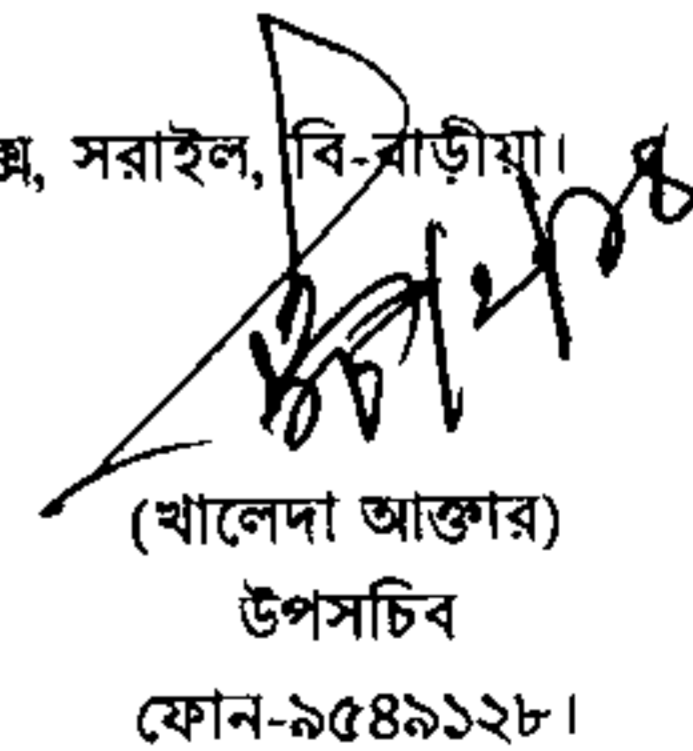 ক্স, সরাইল, বি-বাড়ীয়া।
(খালেদা আক্তার)
উপসচিব
ফোন-৯৫৪৯১২৮।